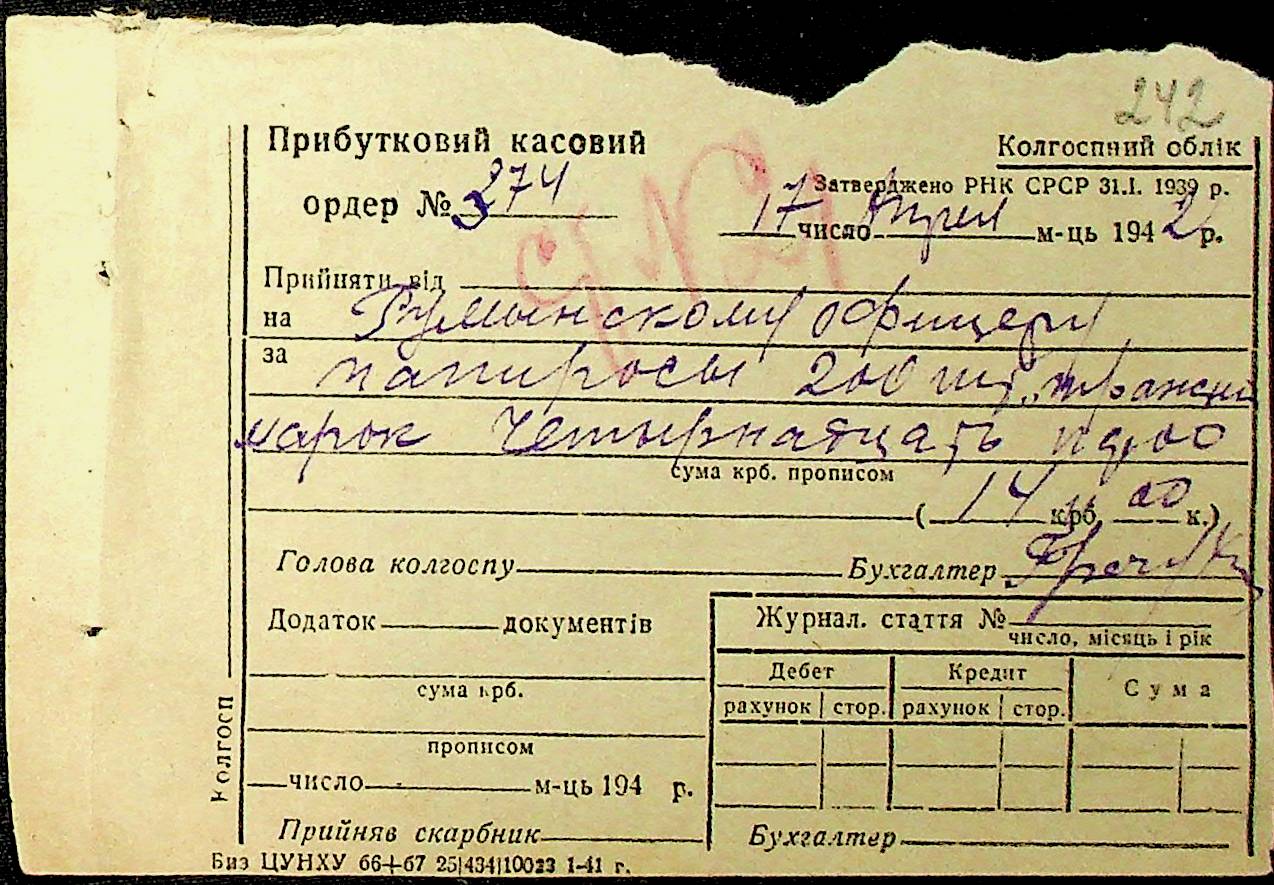 242
Прибутковий касовий
Колгоспний облік
ордер № 274
Затверджено РНК СРСР 31.I. 1939 р.
17 число Апрел м-ць 1942 р.
Прийняти від
на Румынскому офицеру
за папиросы 200 шт.
марок Четырнатцать
сума крб. прописом
( 14 крб. 00 к.)
Голова колгоспу Бухгалтер
Додаток документів
Журнал. стаття №
число, місяць і рік
Дебет Кредит Сума
сума крб.
рахунок стор. рахунок стор.
прописом
число м-ць 194 р.
Прийняв скарбник Бухгалтер
Колгосп
Биз ЦУНХУ 66+67 25|434|10023 1-41 г.